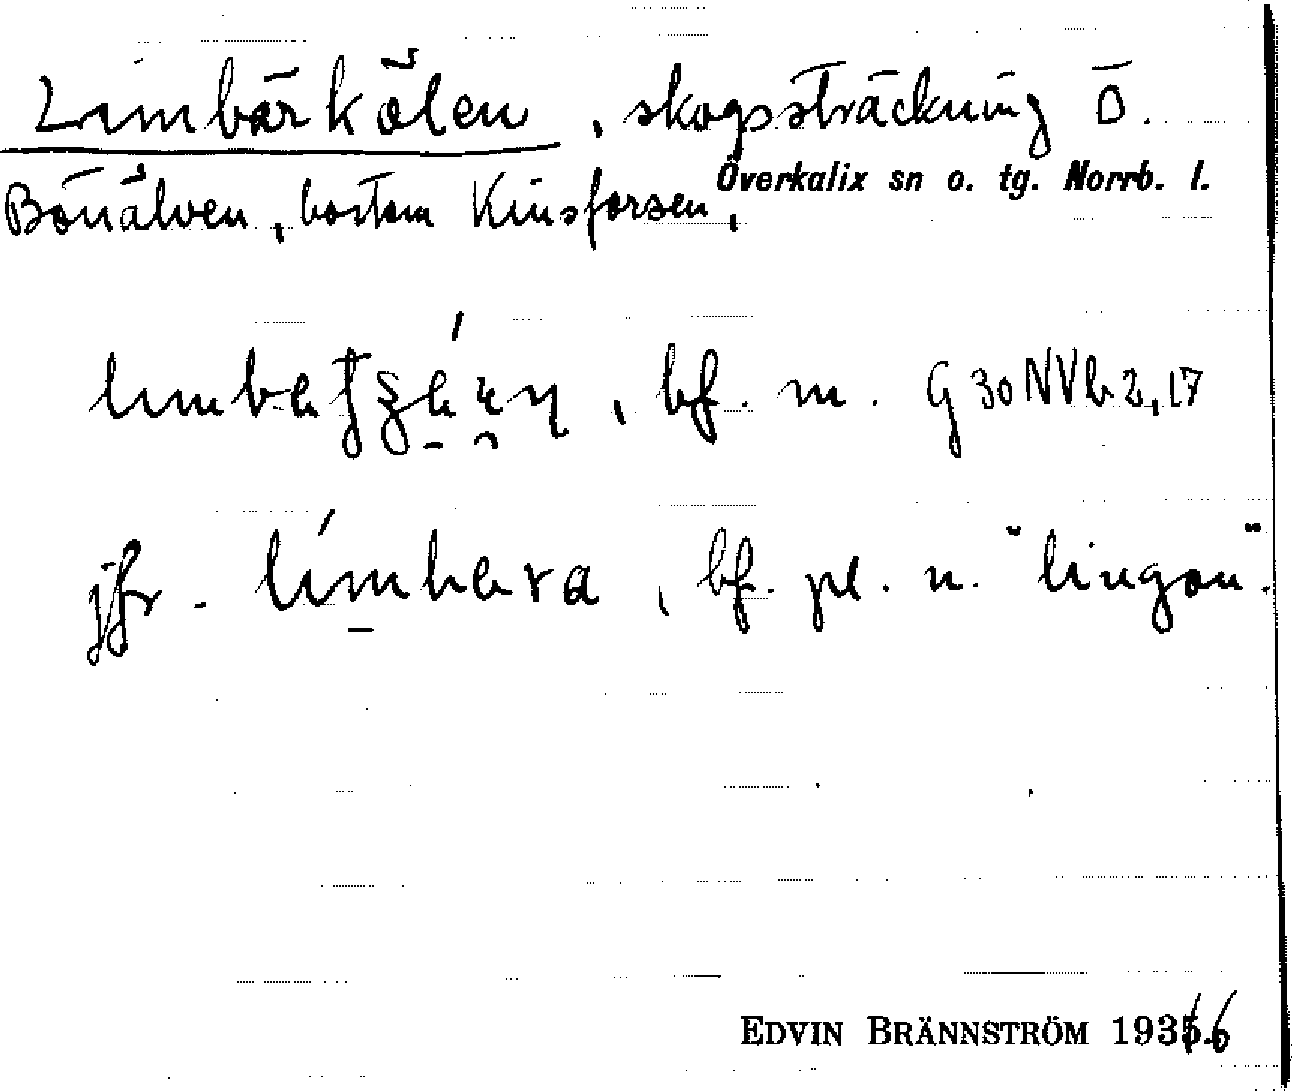 Limbärkölen, skogssträckning Ö.
Bönälven, bortom Kinsforsen,
Överkalix sn o. tg. Norrb. l.
bf. m. G 30 NVb 2,17
jfr. límbæra, bf. pl. n. "lingon".
EDVIN BRÄNNSTRÖM 1936